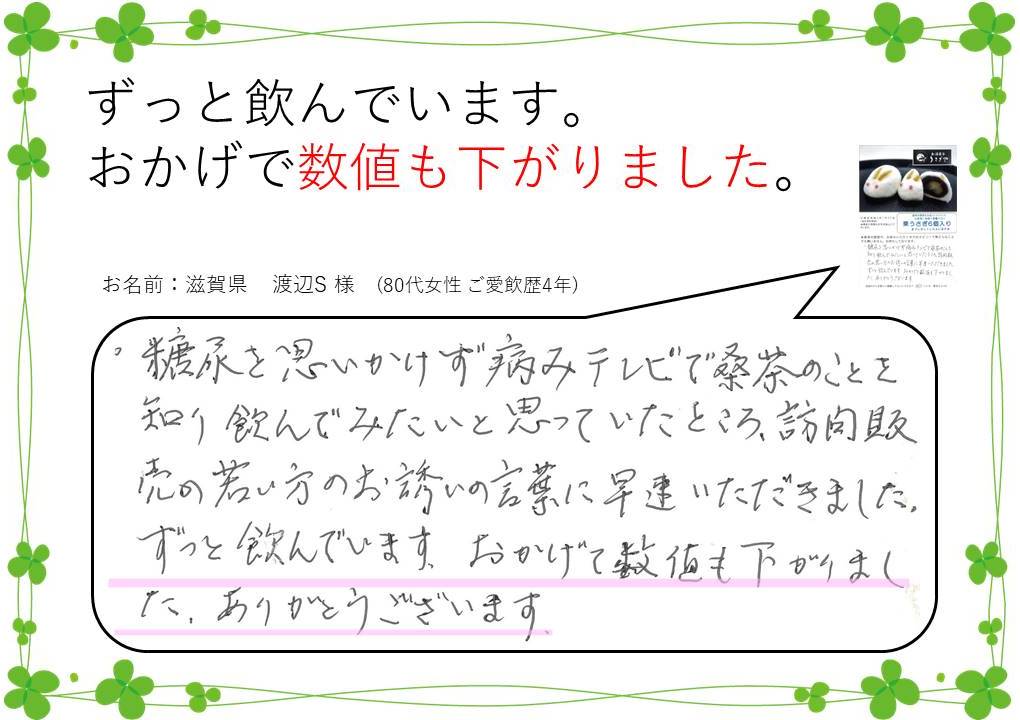 ずっと飲んでいます。
おかげで数値も下がりました。
うさぎや
東うさぎ6個入り
お名前：滋賀県　渡辺S 様　(80代女性 ご愛飲歴4年)
。糖尿を思いかけず病みテレビで桑茶のことを
知り飲んでみたいと思っていたところ、訪問販
売の若い方のお誘いの言葉に早速いただきました。
ずっと飲んでいます。おかげで数値も下がりまし
た。ありがとうございます。